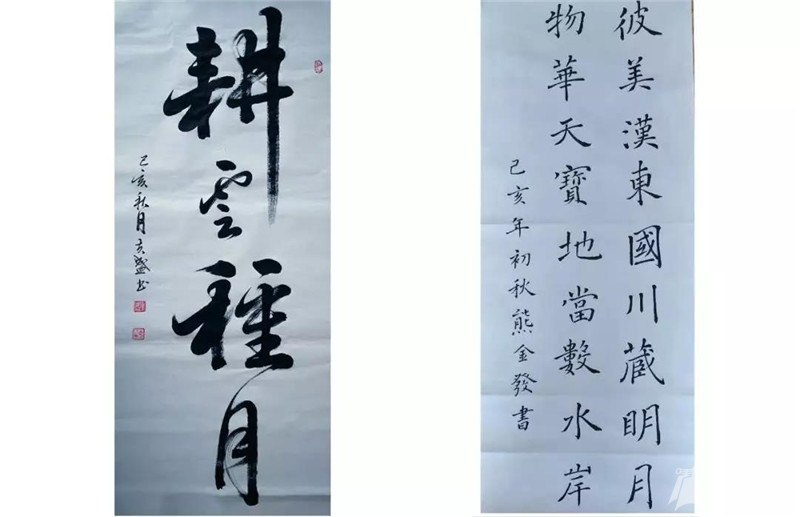 耕雲種月
己亥秋月亥盛书
彼美漢東國川蔵明月
物華天寶地當數水岸
己亥年初秋熊金發書